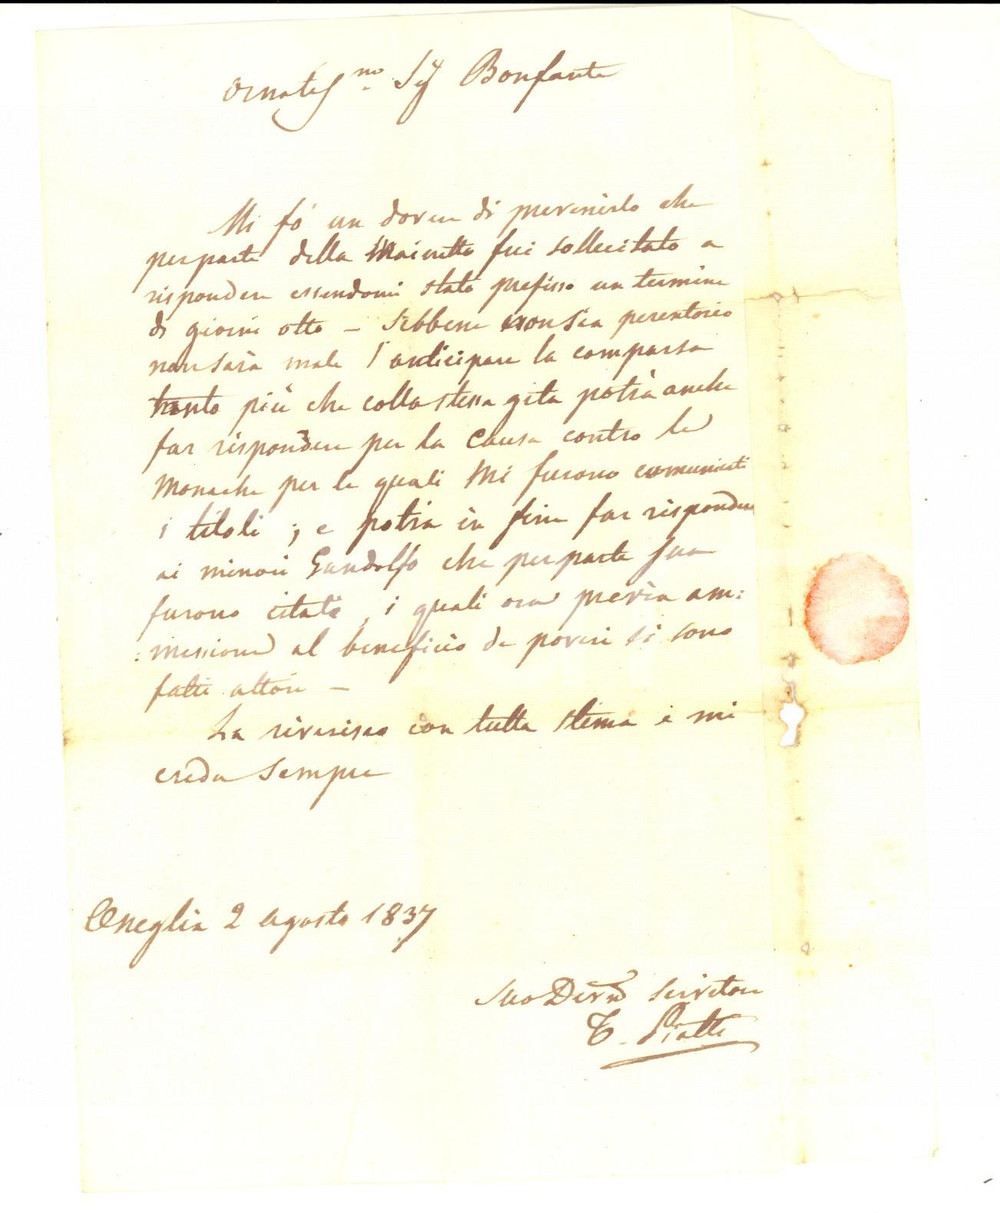 Ornatis.mo Sig Bonfante
Mi fó un dovere di prevenirlo che
per parte della fui sollecitato a
rispondere essendomi stato prefisso un termine
di giorni otto — Sebbene non sia perentorio
non sarà male l'anticipare la comparsa
tanto più che colla stessa gita potrà anche
far rispondere per la Causa contro le
Monache per le quali Mi furono comunicati
i titoli ; e potrà in fine far rispondere
ai minori Gandolfo che per parte sua
furono citati, i quali ora previa am:
:missione al beneficio de poveri si sono
fatti attori —
La riverisco con tutta stima e mi
creda Sempre
Oneglia 2 agosto 1837
Suo Dev.mo Servitore